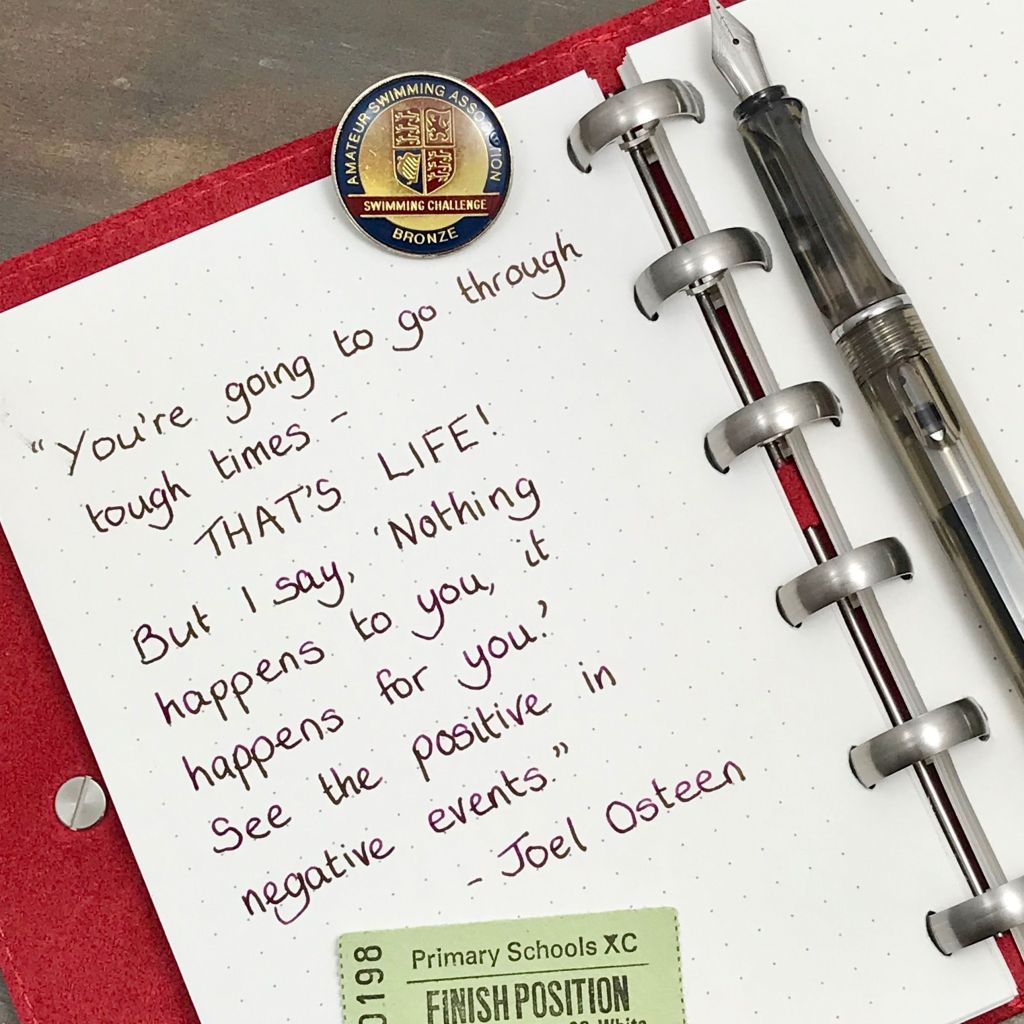 AMATEUR SWIMMING ASSOCIATION
SWIMMING CHALLENGE
BRONZE
"You're going to go through
tough times -
THAT'S LIFE!
But I say, 'Nothing
happens to you, it
happens for you.'
See the positive in
negative events."
- Joel Osteen
0198
Primary Schools XC
FINISH POSITION
White